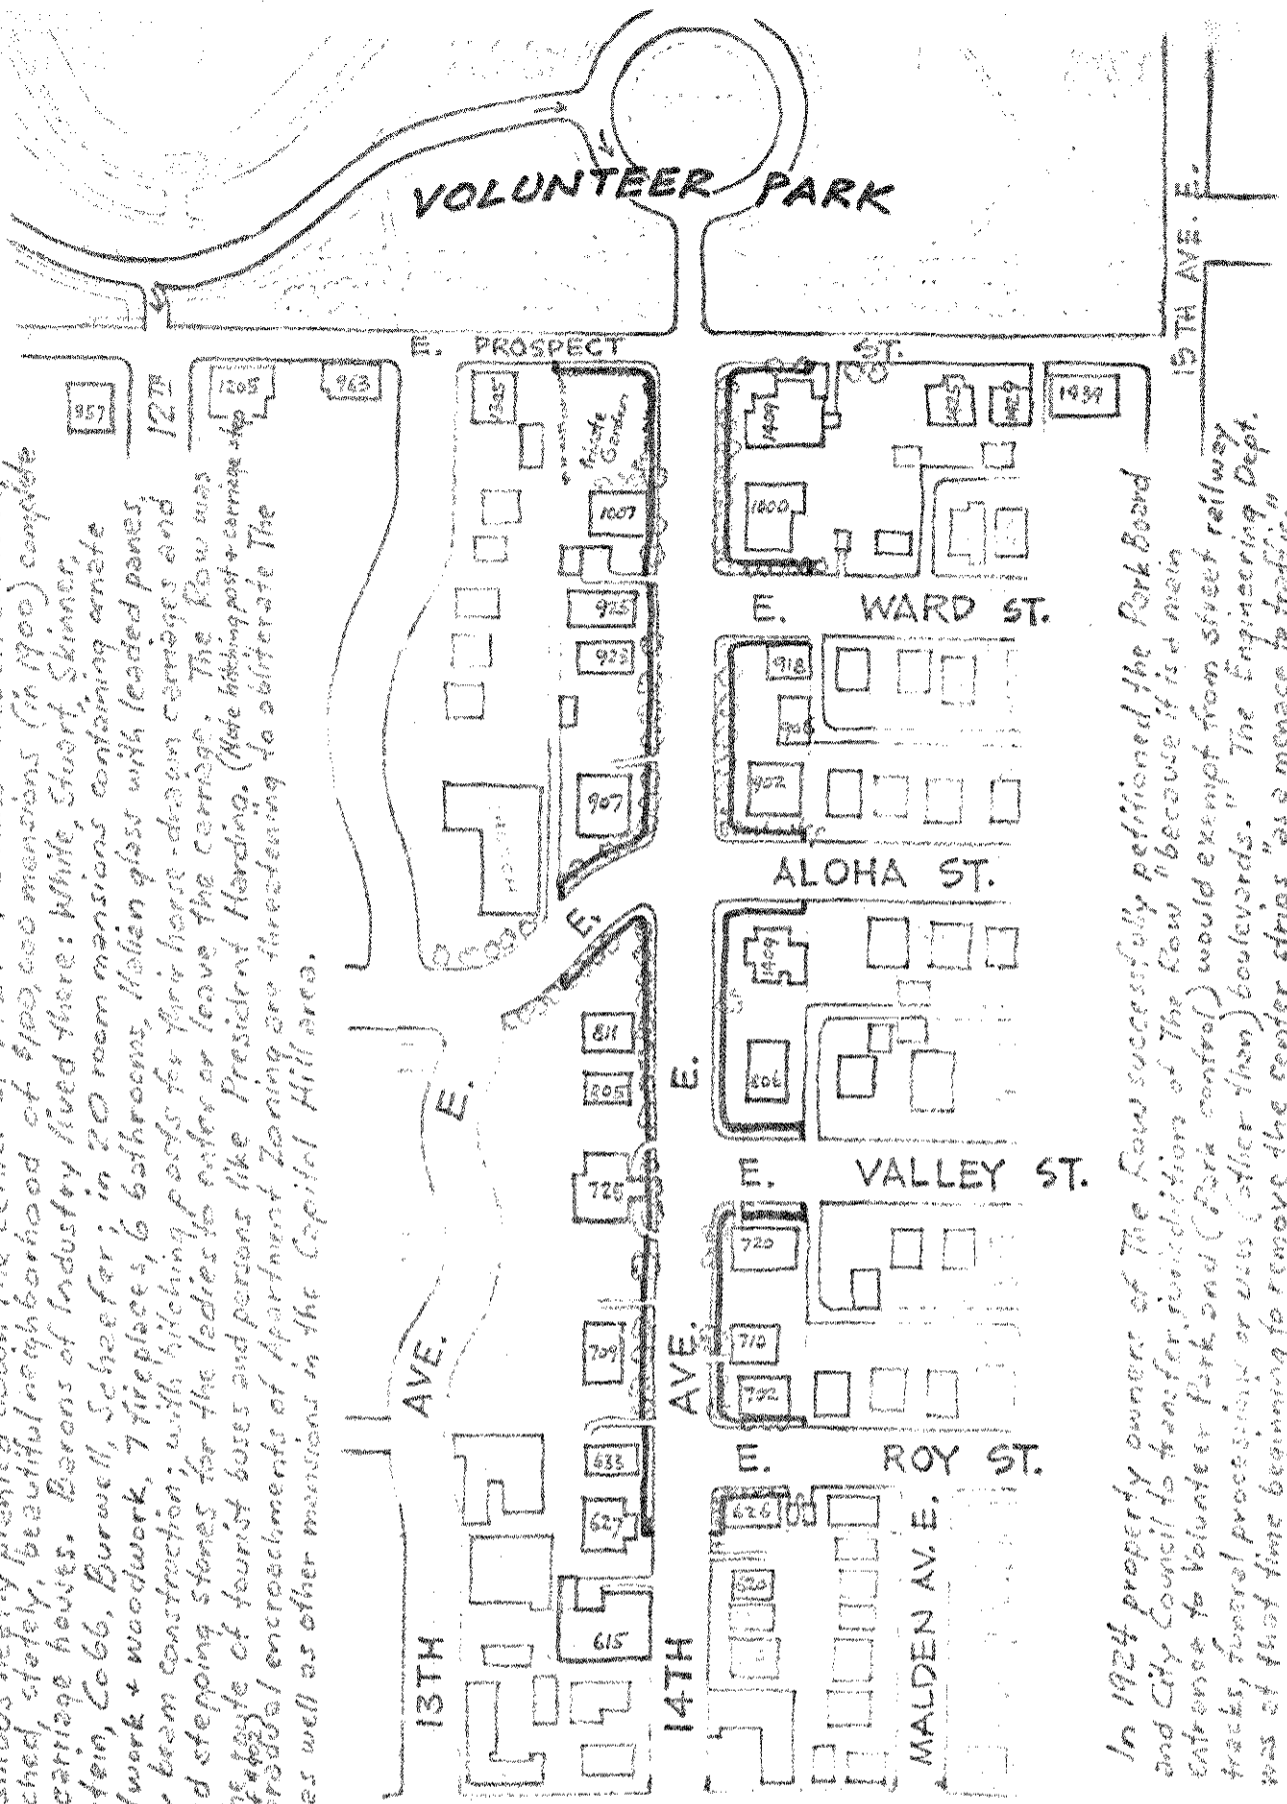 VOLUNTEER PARK
15TH AVE. E.
E. PROSPECT ST.
957
12TH
1205
963
1305
Private
Garden
1409
1425
1429
1439
1007
1000
E. WARD ST.
925
923
918
907
902
E. ALOHA ST.
1409
811
805
806
E.
E.
E. VALLEY ST.
720
709
710
AVE.
AVE.
E. ROY ST.
633
627
626
615
13TH
14TH
MALDEN AV. E.
ched, stately, beautiful neighborhood of $100,000 mansions (in 1900) complete
carriage houses. Barons of Industry lived there: White, Stuart, Skinner,
Cobb, Burwell, Schaefer; in 20 room mansions containing ornate
work + woodwork, 7 fireplaces, 6 bathrooms, Italian glass with leaded panes,
beam construction; with hitching posts for their horse-drawn carriages and
d stepping stones for the ladies to enter or leave the carriage. The Row was
route of tourist buses and persons like President Harding. (Note hitching post + carriage step
gradual encroachments of Apartment Zoning are threatening to obliterate The
as well as other mansions in the Capitol Hill area.
In 1924 property owners of The Row successfully petitioned the Park Board
and City Council to transfer jurisdiction of The Row "because it is a main
entrance to Volunteer Park and (Park control) would exempt from street railway
tracks, funeral processions or uses (other than) boulevards." The Engineering Dept.
was at that time beginning to remove the center strips "as a menace to traffic"